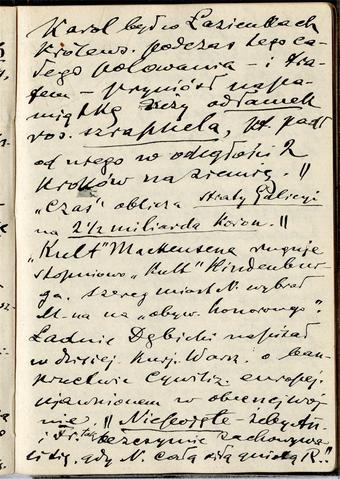 Karol był w Łazienkach
Królews. podczas tego ca-
łego polowania – i tra-
fem – przyniósł na pa-
miątkę duży odłamek
ros. szrapnela, kt. padł
od niego w odległości 2
kroków na ziemię. ||
„Czas" oblicza straty Galicyi
na 2 1/2 miliarda koron. ||
„Kult" Mackensena ruguje
stopniowo „kult" Hindenbur-
ga. Szereg miast N. wybrał
M-na na „obyw. honorowego".
Ładnie Dębicki napisał
w dzisiej. Kurj. Warsz. o ban-
kructwie cywiliz. europej.
ujawnionem w obecnej woj-
nie || Niepojęte – żeby An.
i Fr. tak bezczynie zachowywa-
li się, gdy N. całą siłą gniotą R.!!